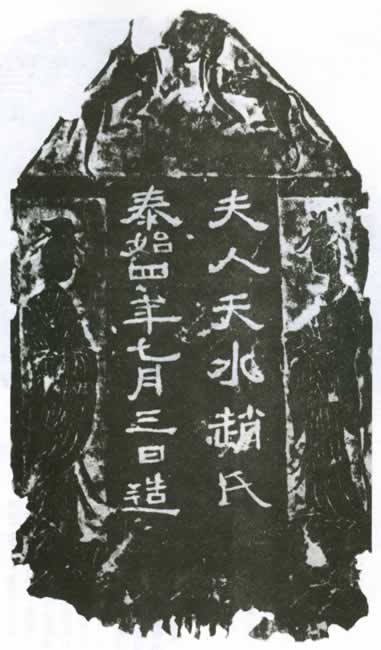 夫人天水趙氏
泰始四年七月三日造